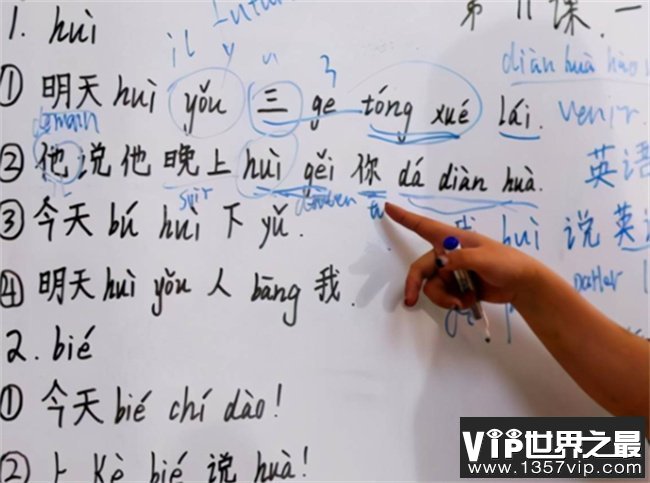 第11课.一
1. huì
il y a 3
diàn huà hào
① 明天 huì yǒu 三 ge tóng xué lái. venir.
② 他说他晚上 huì gěi 你 dá diàn huà. 英语
soir
tu
③ 今天 bú huì 下 yǔ.
huì 说英
④ 明天 huì yǒu 人 bāng 我.
2. bié
① 今天 bié chí dào!
② 上 Kè bié 说 huà!
VIP世界之最
www.1357vip.com